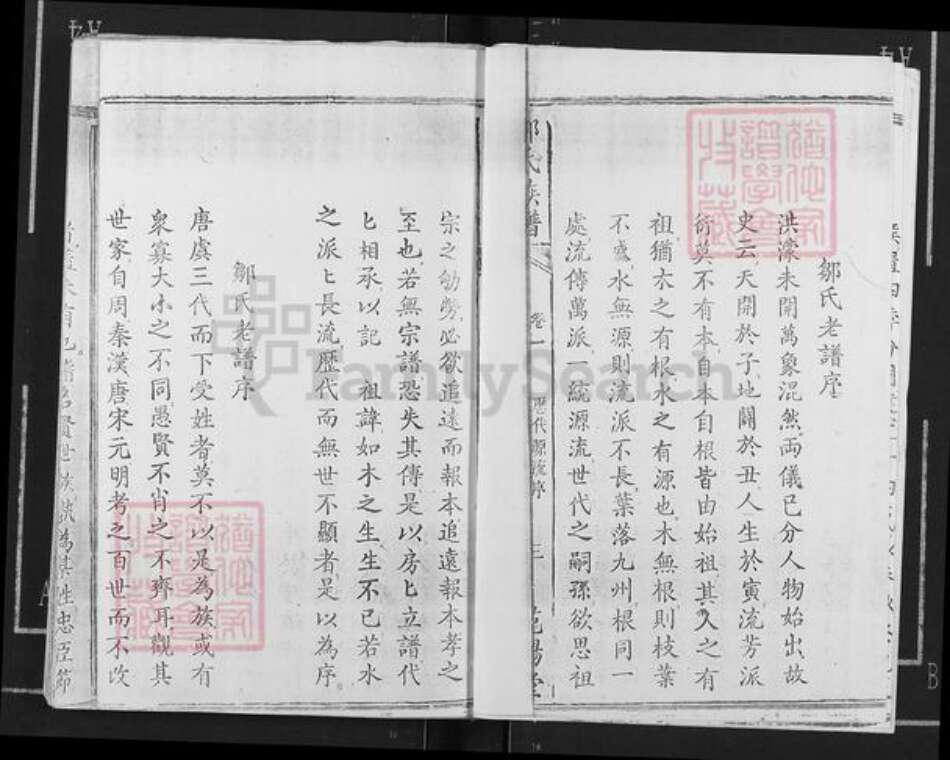 鄒氏老譜序
洪濛未開萬象混然兩儀已分人物始出故
史云天開於子地闢於丑人生於寅流芳派
衍莫不有本自本自根皆由始祖其人之有
祖猶木之有根水之有源也木無根則枝葉
不盛水無源則流派不長葉落九州根同一
處流傳萬派一統源流世代之嗣孫欲思祖
氏族譜
卷一
歷代源流序
三
宗之劬勞必欲追遠而報本追遠報本孝之
至也若無宗譜恐失其傳是以房匕立譜代
匕相承以記 祖諱如木之生生不已若水
之派匕長流歷代而無世不顯者是以為序
鄒氏老譜序
唐虞三代而下受姓者莫不以是為族或有
衆寡大小之不同愚賢不肖之不齊耳觀其
世家自周秦漢唐宋元明考之百世而不改
姓忠臣節
FamilySearch